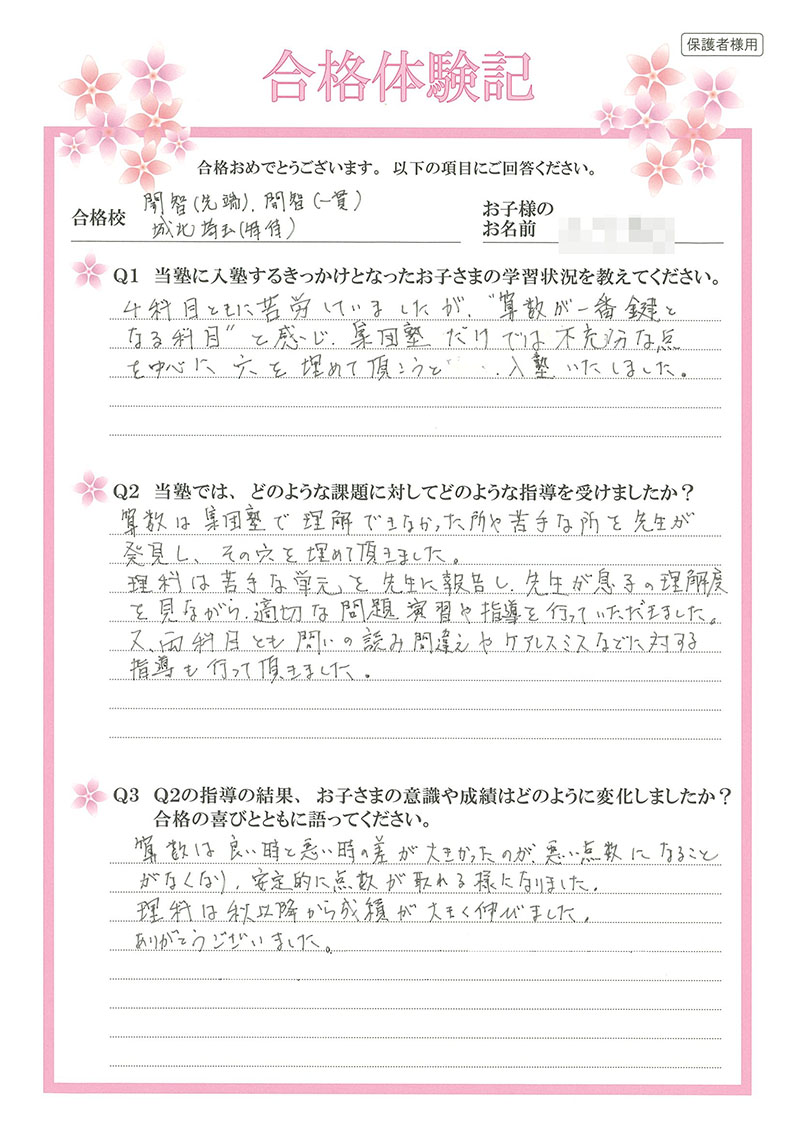 保護者様用
合格体験記
合格おめでとうございます。以下の項目にご回答ください。
合格校
開智(先端)、開智(一貫)
城北埼玉(特待)
お子様の
お名前
Q1 当塾に入塾するきっかけとなったお子さまの学習状況を教えてください。
4科目ともに苦労していましたが、"算数が一番鍵と
なる科目"と感じ、集団塾だけでは不充分な点
を中心に穴を埋めて頂こうと、入塾いたしました。
Q2 当塾では、どのような課題に対してどのような指導を受けましたか?
算数は集団塾で理解できなかった所や苦手な所を先生が
発見し、その穴を埋めて頂きました。
理科は苦手な単元を先生に報告し、先生が息子の理解度
を見ながら、適切な問題演習や指導を行っていただきました。
又、両科目とも問いの読み間違えやケアレスミスなどに対する
指導も行って頂きました。
Q3 Q2の指導の結果、お子さまの意識や成績はどのように変化しましたか?
合格の喜びとともに語ってください。
算数は良い時と悪い時の差が大きかったのが、悪い点数になること
がなくなり、安定的に点数が取れる様になりました。
理科は秋以降から成績が大きく伸びました。
ありがとうございました。